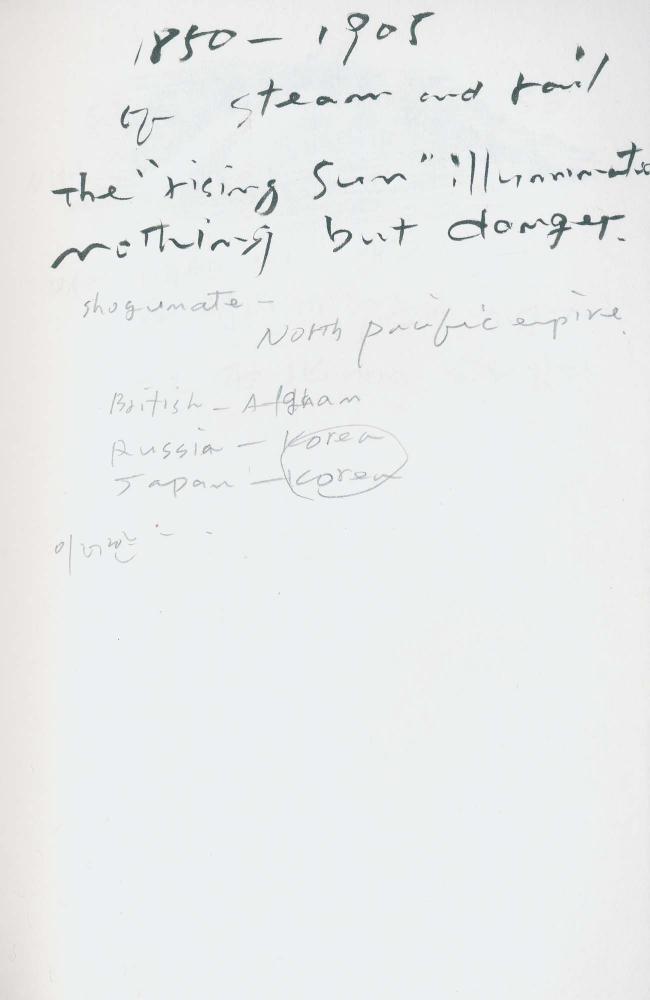 1850 - 1905
of steam and rail
The "rising Sun" illuminates
nothing but danger.
shogunate -
North pacific empire.
British - Afghan
Russia - Korea
Japan - Korea